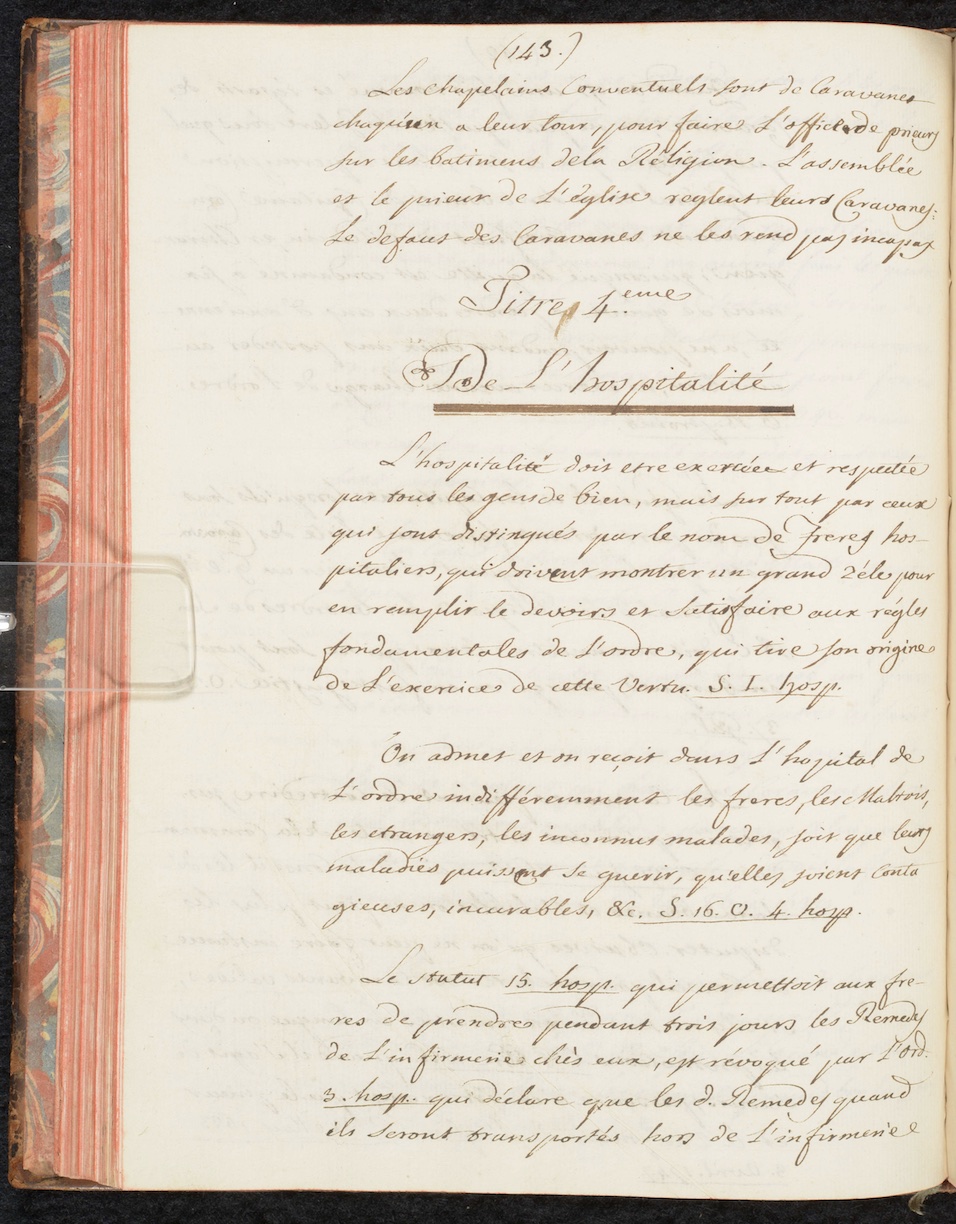 (143.)
Les chapelains Conventuels sont de Caravanes
chaqu'un a leur tour, pour faire l'office de prieurs
sur les batimens de la Réligion. L'assemblée
et le prieur de L'église reglent leurs Caravanes:
Le defaut des Caravanes ne les rend pas incapas
Titre 4.eme
De L'hospitalité
L'hospitalité doit etre exercée et respectée
par tous les gens de bien, mais sur tout par ceux
qui sont distingués par le nom de Freres hos-
pitaliers, qui doivent montrer un grand Zéle pour
en remplir le devoirs et satisfaire aux régles
fondamentales de L'ordre, qui tire son origine
de L'exercice de cette Vertu. S. I. hosp.
On admet et on reçoit dans L'hopital de
L'ordre indifféremment les freres, les Maltois,
les etrangers, les inconnus malades, soit que leurs
maladies puissent se guerir, qu'elles soient Conta
gieuses, incurables, &c. S. 16. O. 4. hosp.
Le statut 15. hosp. qui permettoit aux fre-
res de prendre pendant trois jours les Remedes
de L'infirmerie chès eux, est révoqué par L'Ord.
3. hosp. qui déclare que les d. Remedes quand
ils seront transportés hors de L'infirmerie